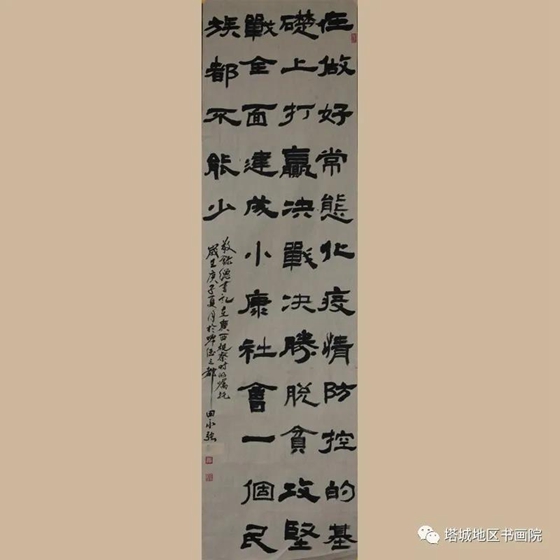 在做好常態化疫情防控的基
礎上打贏決戰決勝脫貧攻堅
戰全面建成小康社會一個民
族都不能少
敬錄總書記在寧夏視察時的囑托
歲在庚子夏月於
田小
塔城地区书画院